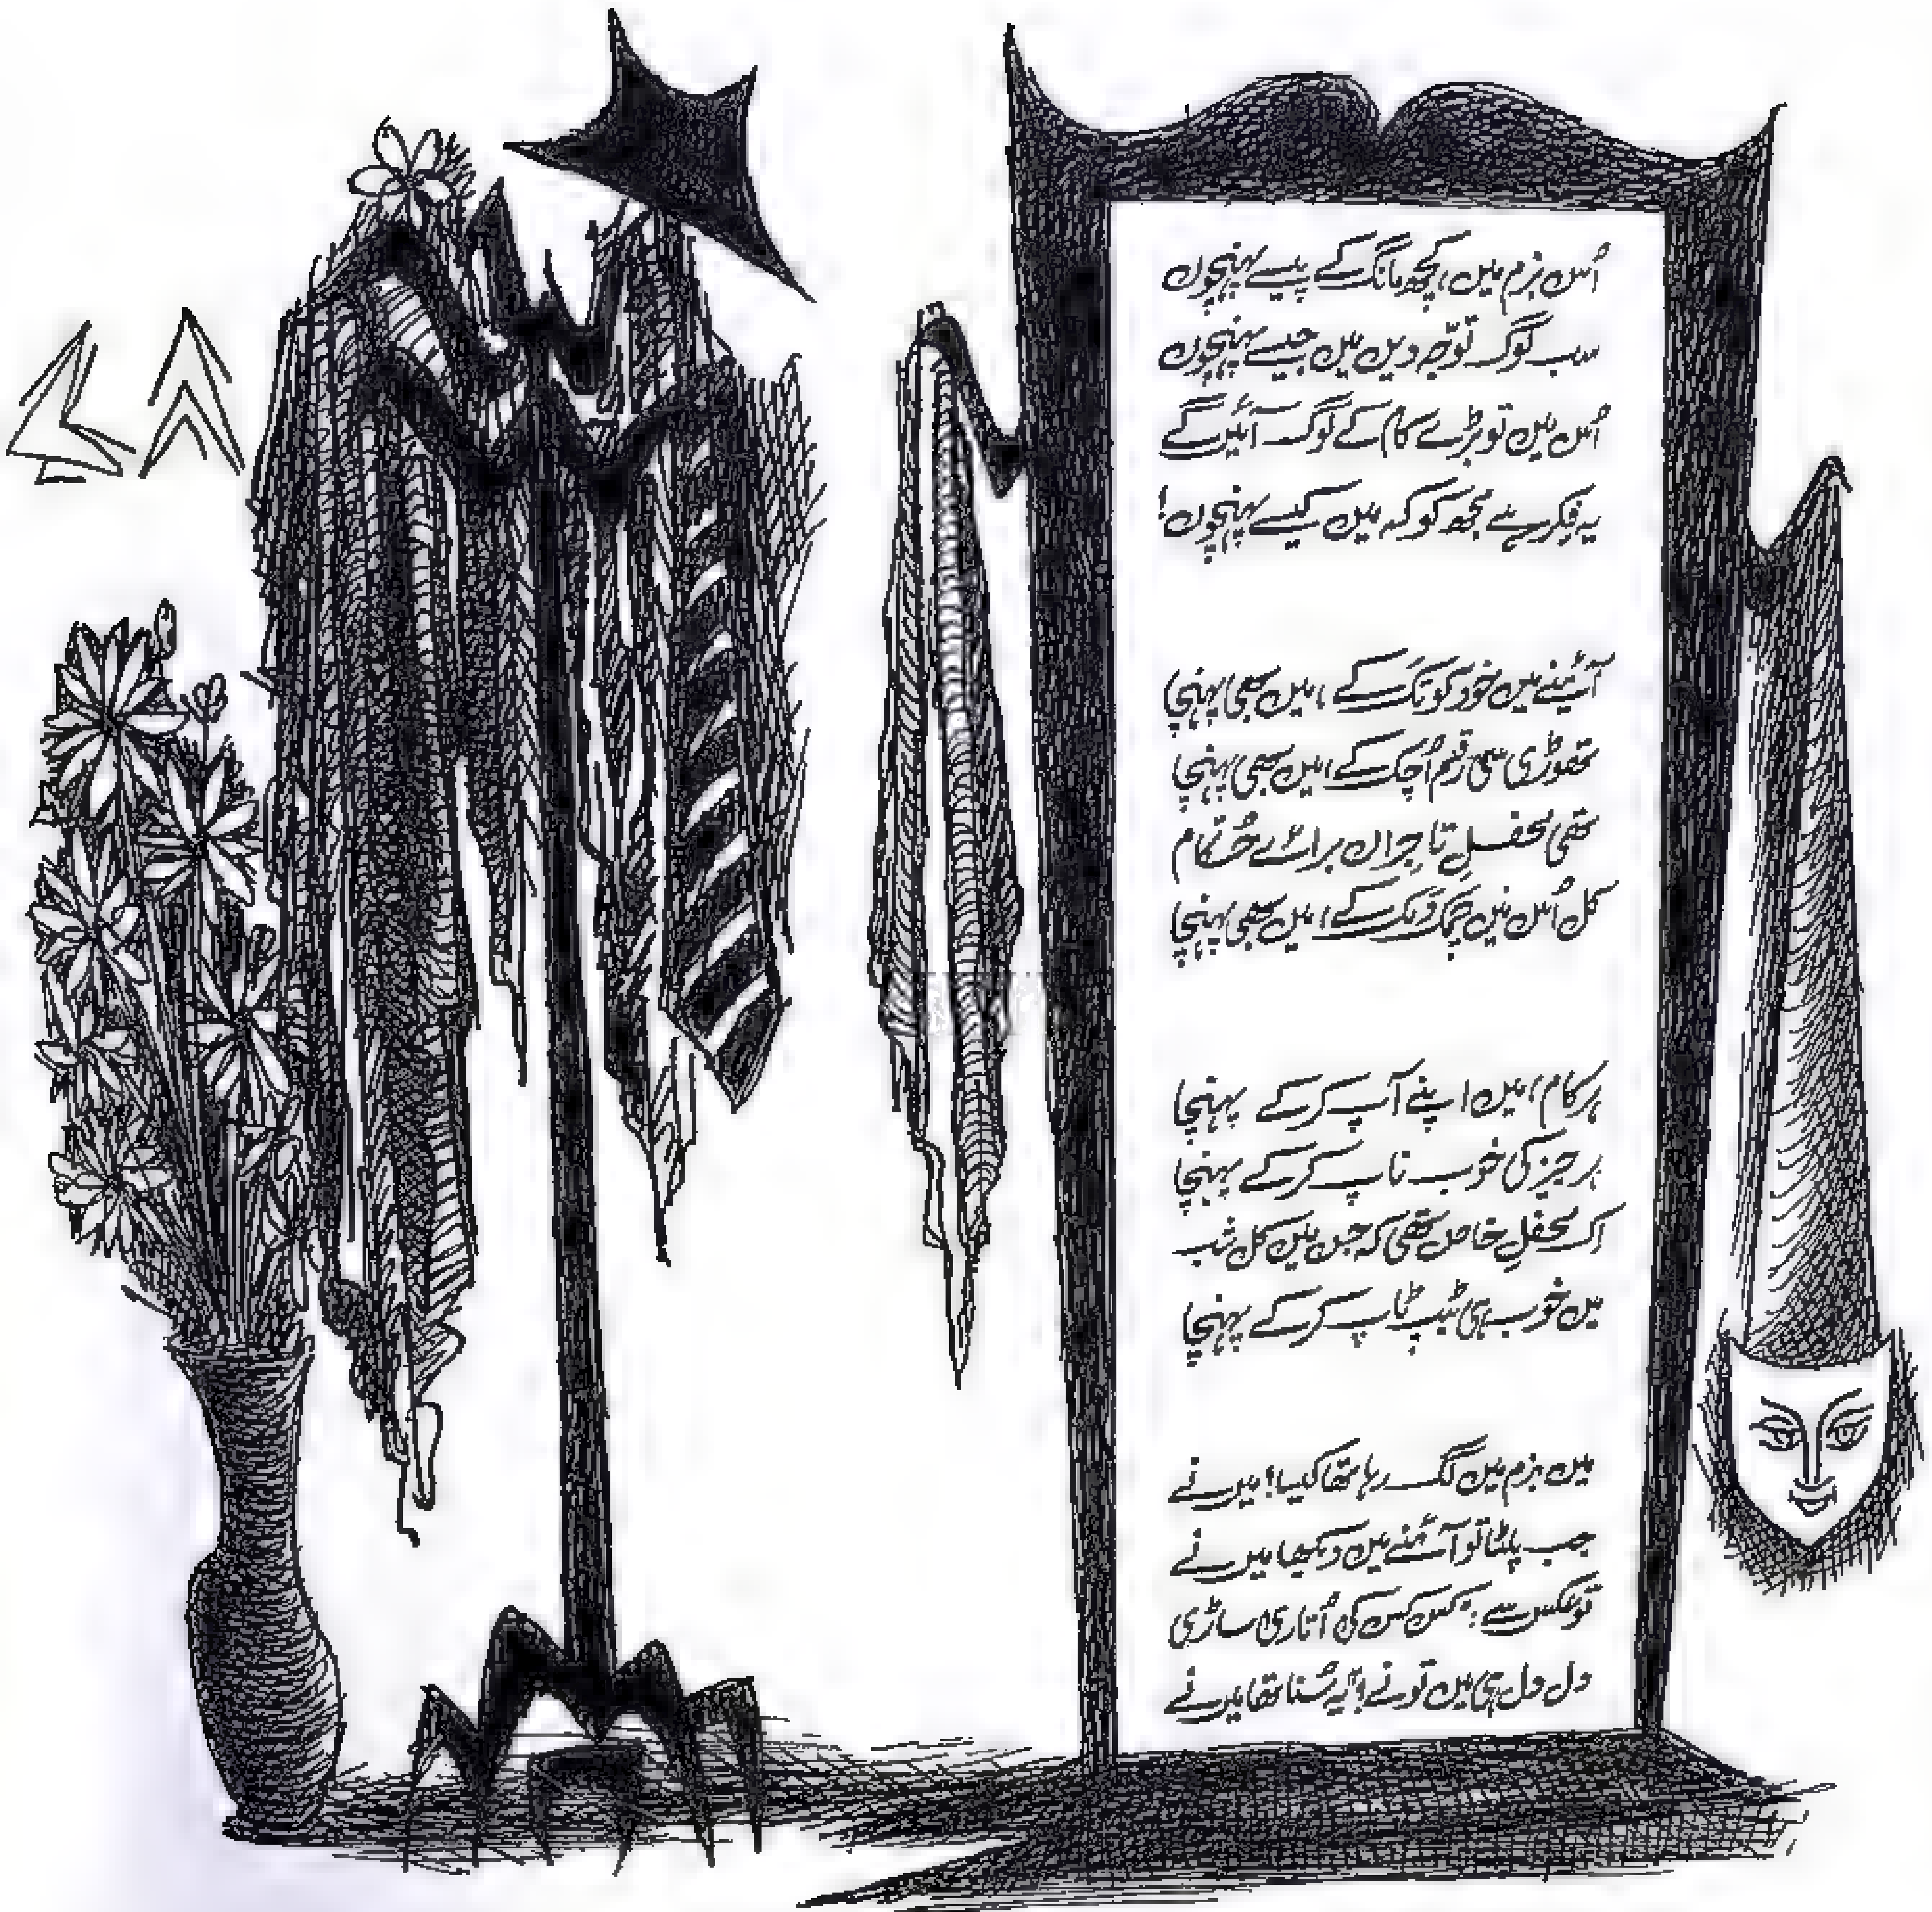 اُس بزم میں، کچھ مانگ کے پیسے پہنچوں
سب لوگ توجّہ دیں میں جیسے پہنچوں
اُس میں تو بڑے کام کے لوگ آئیں گے
یہ فکر ہے مجھ کو کہ میں کیسے پہنچوں!
آئینے میں خود کو تک کے، میں بھی پہنچا
تھوڑی سی رقم اُچک کے، میں بھی پہنچا
تھی محفلِ تاجراں برائے حُکّام
کل اُس میں چمک دمک کے، میں بھی پہنچا
ہر کام، میں اپنے آپ کر کے پہنچا
ہر چیز کی خوب ناپ کر کے پہنچا
اک محفلِ خاص تھی کہ جس میں کل شب
میں خوب ہی ٹیپ ٹاپ کر کے پہنچا
میں بزم میں لگ رہا تھا کیسا؟ میں نے
جب پلٹا تو آئنے میں دیکھا میں نے
تو عکس سے: "کس کس کی اُتاری ساڑی
دل دل ہی میں تو نے؟" یہ سُنا تھا میں نے